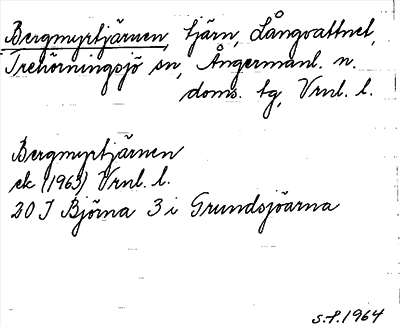 Bergmyrtjärnen, tjärn, Långvattnet,
Trehörningsjö sn, Ångermanl. n.
doms. tg, Vrnl. l.
Bergmyrtjärnen
ek (1963) Vrnl. l.
20 I Björna 3 i Grundsjöarna
S.F. 1964